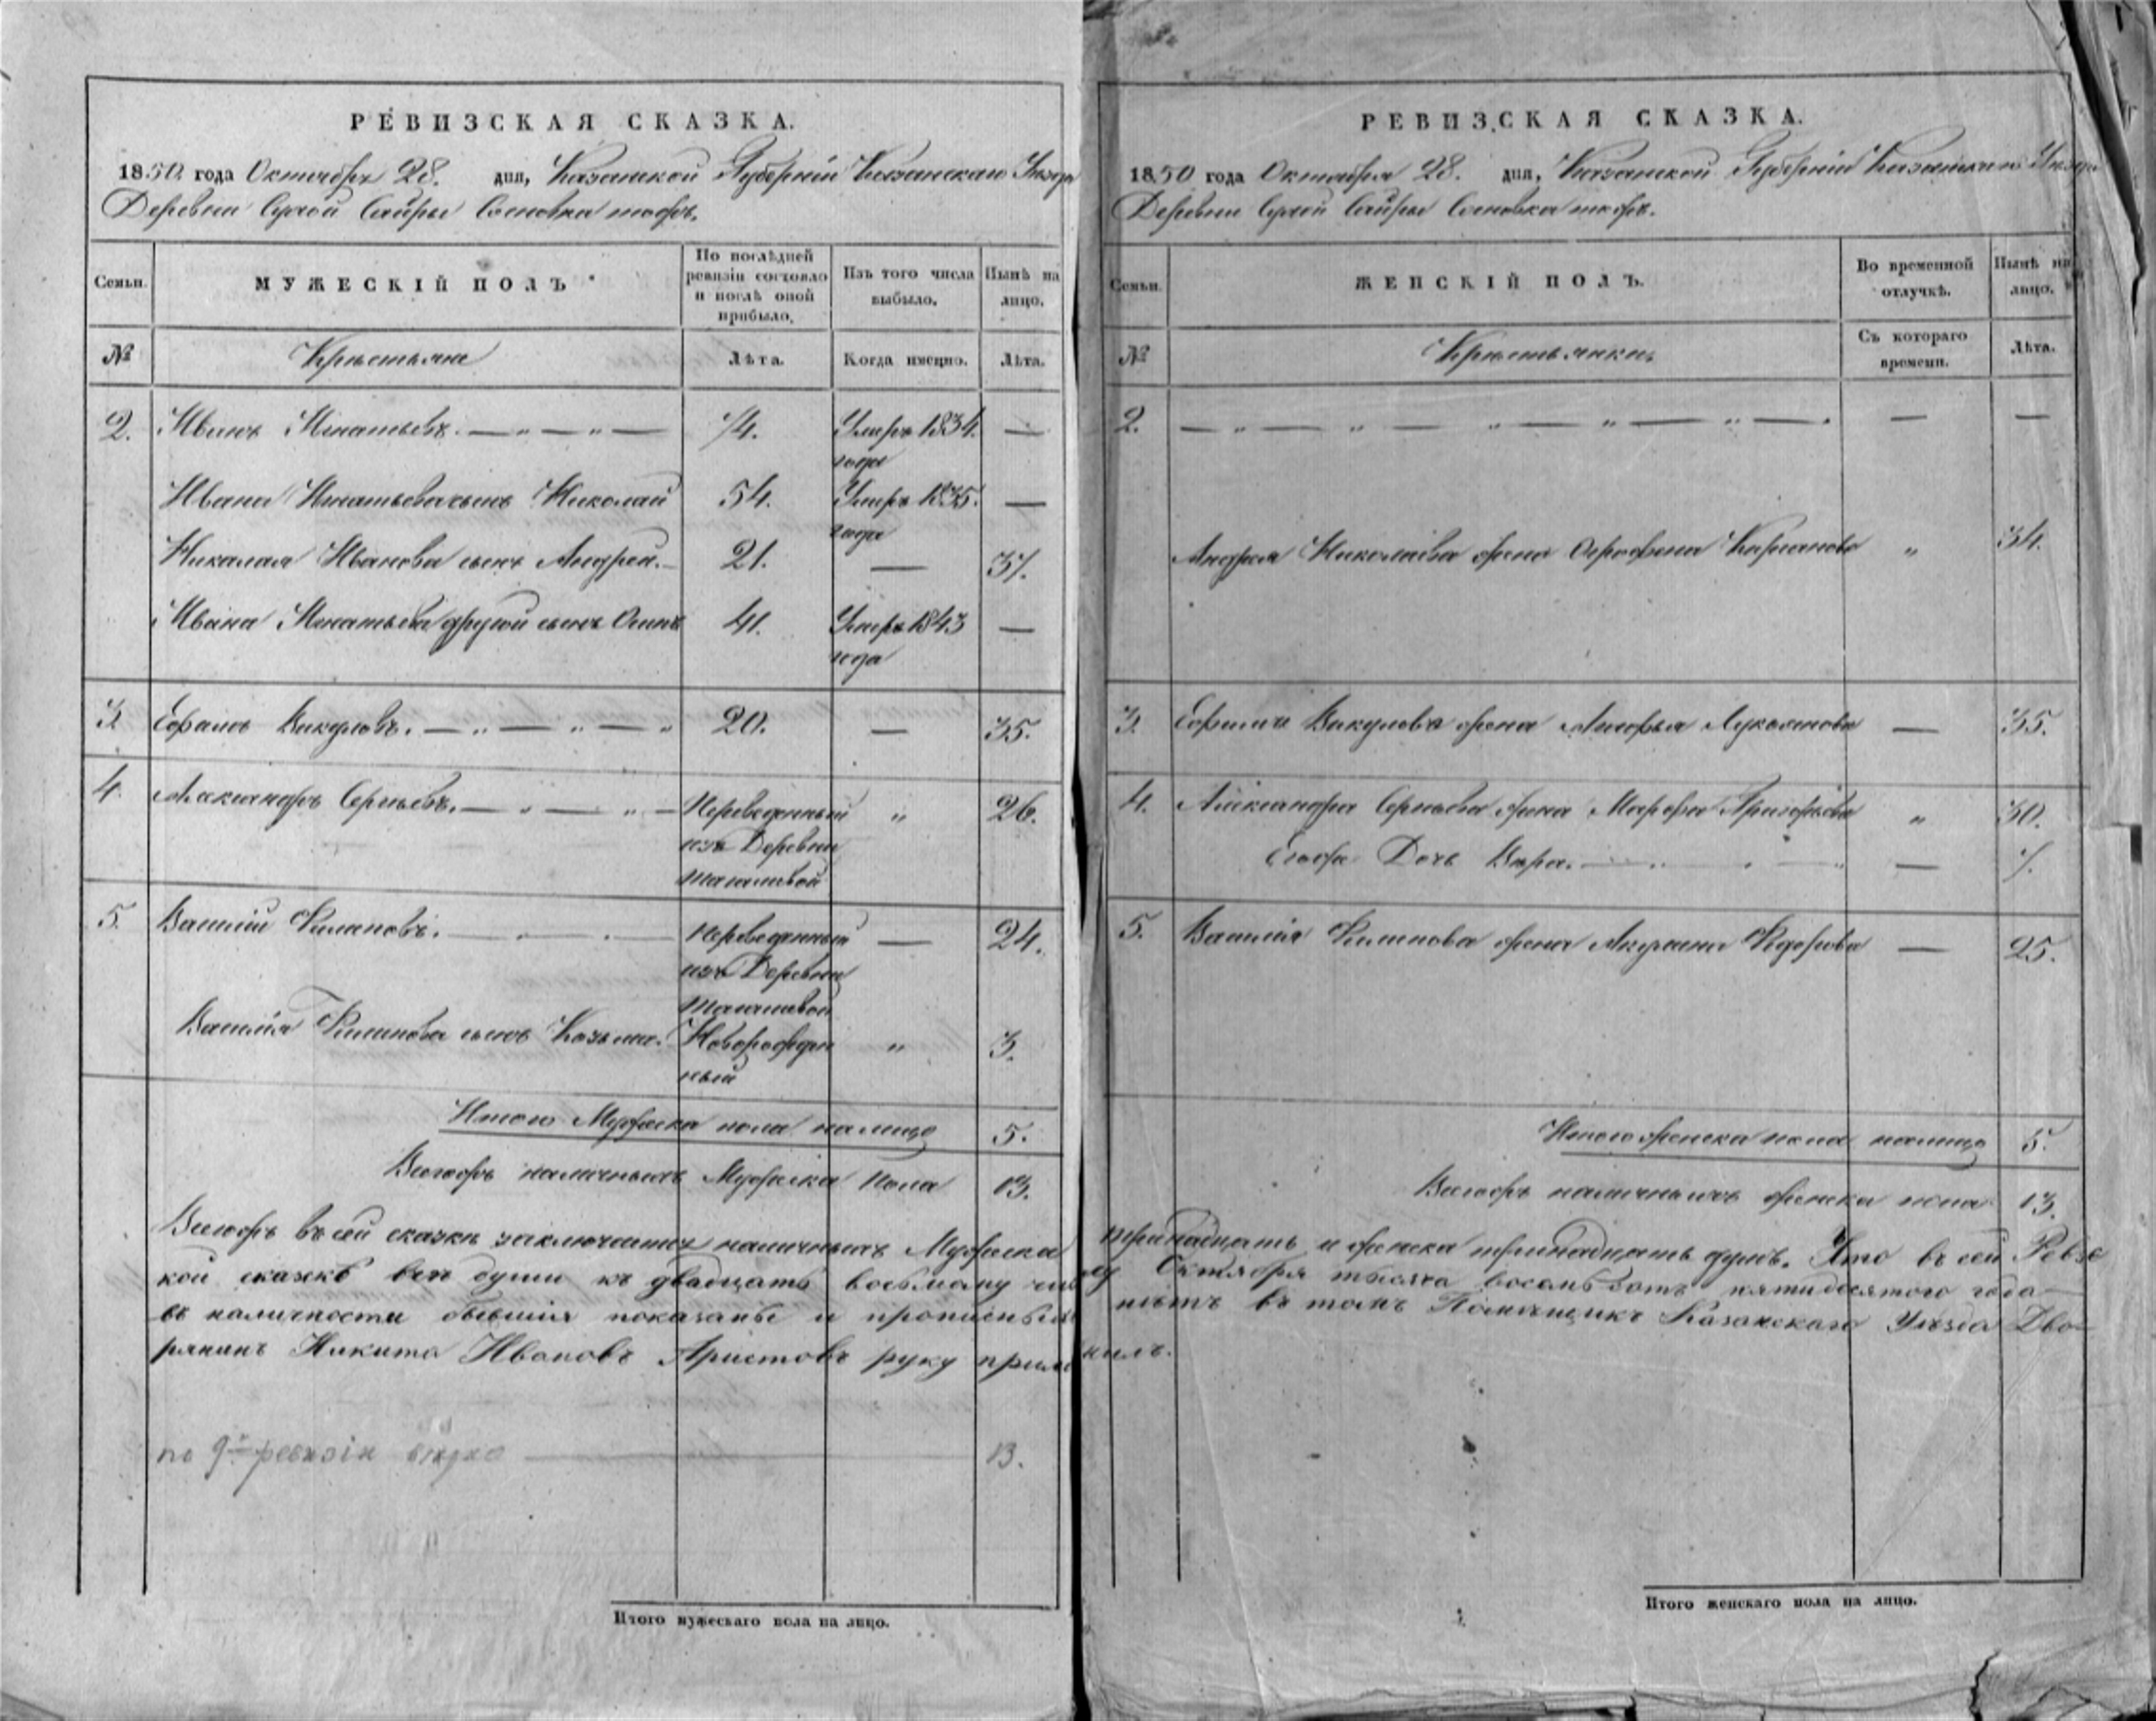 РЕВИЗСКАЯ СКАЗКА.
1850 года Октября 28. дня, Казанской Губерніи Казанскаго Уѣзда
Деревни Сухой Сосновка тожъ.
Семьи.
МУЖЕСКІЙ ПОЛЪ
По послѣдней ревизіи состояло и послѣ оной прибыло.
Изъ того числа выбыло.
Нынѣ на лицо.
№
Крестьяне
Лѣта.
Когда именно.
Лѣта.
2. Иванъ Игнатьевъ. — „ — „ — 74. Умеръ 1834. —
года
Ивана Игнатьева сынъ Николай 54. Умеръ 1835. —
года
Николая Иванова сынъ Андрей. — 21. — 37.
Ивана Игнатьева другой сынъ Осипъ 41. Умеръ 1843 —
года
3. Ефимъ Викуловъ. — „ — „ — „ 20. — 35.
4. Александръ Сергѣевъ. — „ — „ — Переведенный „ 26.
изъ Деревни
5. Василій Филиповъ. — „ — Переведенный — 24.
изъ Деревни
Василія Филипова сынъ Козьма. Новорожден „ 3.
ный
Итого Мужеска пола налицо 5.
Всегожъ наличныхъ Мужеска пола 13.
Всегожъ въ сей сказкѣ заключается наличныхъ Мужеска
кой сказкѣ всѣ души къ двадцать восьмому чис
въ наличности бывшія показаны и
рянинъ Никита Ивановъ Аристовъ руку прило
по 9й ревизіи 13.
Итого мужескаго пола на лицо.
РЕВИЗСКАЯ СКАЗКА.
1850 года Октября 28. дня, Казанской Губерніи Казанскаго Уѣзда
Деревни Сухой Сосновка тожъ.
Семьи.
ЖЕНСКІЙ ПОЛЪ.
Во временной отлучкѣ.
Нынѣ на лицо.
№
Крестьянки
Съ котораго времени.
Лѣта.
2. — „ — „ — „ — „ — „ — . — —
Андрея Николаева жена „ 34.
3. Ефима Викулова жена Лукоянова — 35.
4. Александра Сергѣева жена Марфа Григорьева „ 30.
Егожъ Дочь Вѣра. — 7.
5. Василія Филипова жена Акулина Федорова — 25.
Итого женска пола налицо 5.
Всегожъ наличныхъ женска пола 13.
тринадцать и женска тринадцать душъ. Что въ сей Ревзс
лу Октября тысяча восемьсотъ пятидесятого года
нѣтъ въ томъ Помѣщикъ Казанскаго Уѣзда Дво-
жилъ.
Итого женскаго пола на лицо.